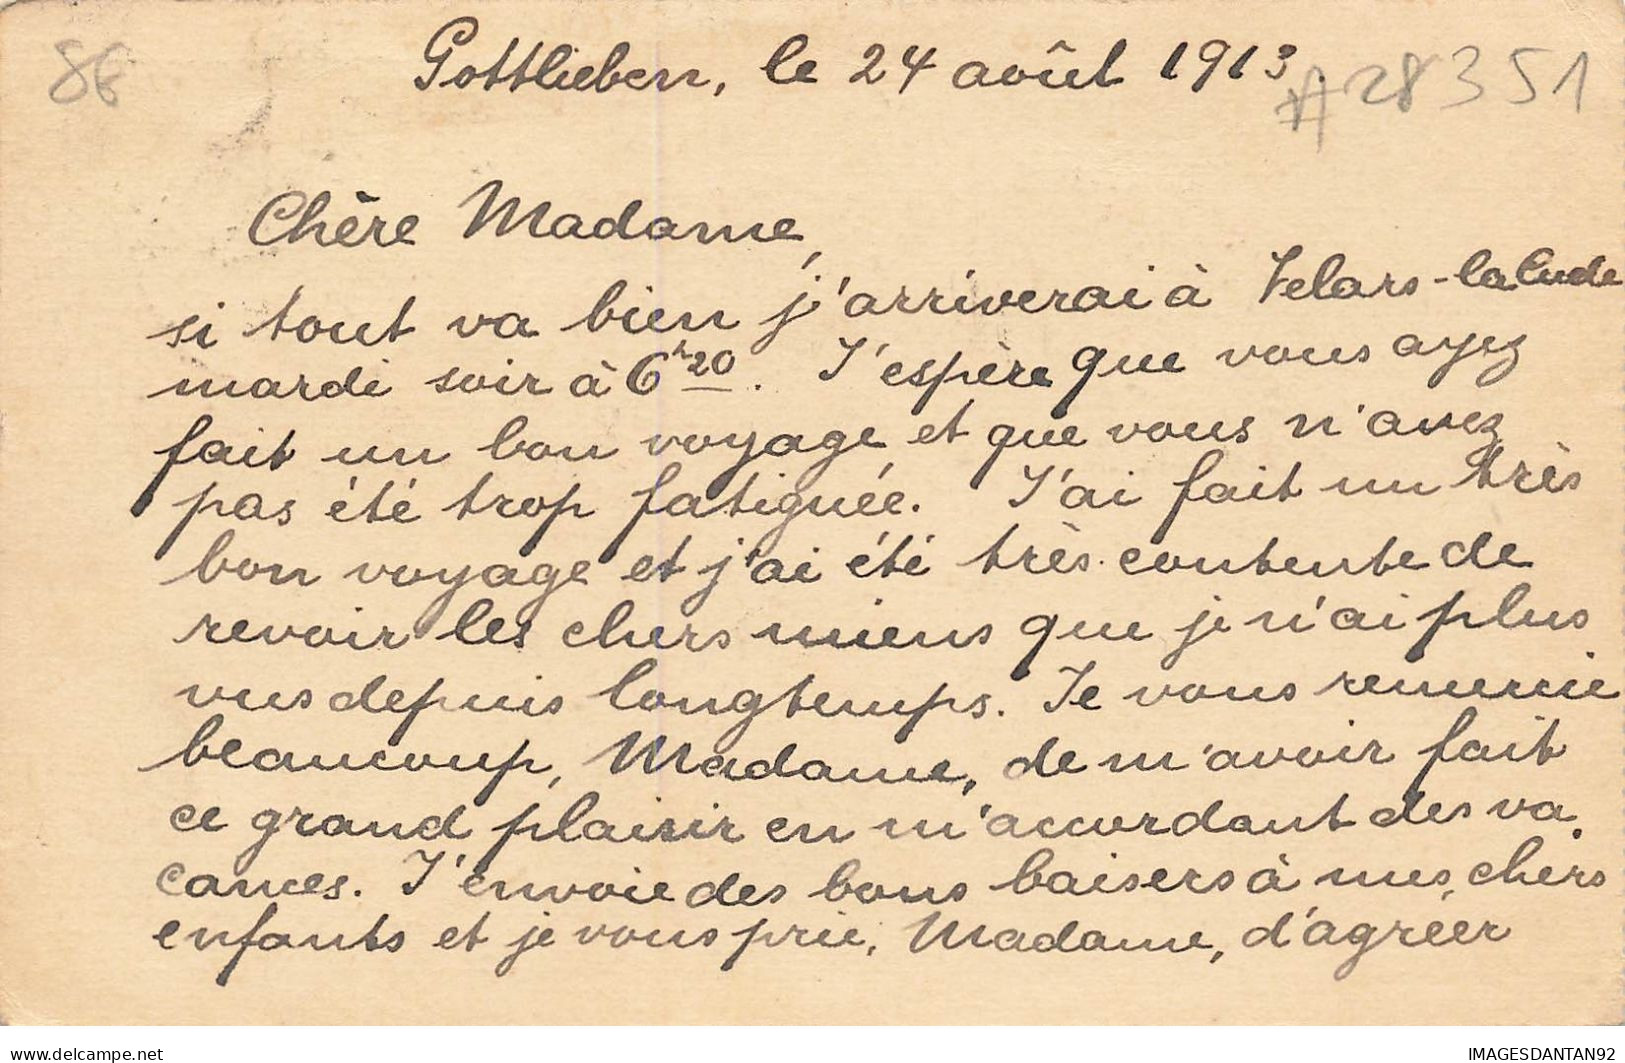 8E
Gottlieben, le 24 août 1913.
#28351
Chère Madame,
si tout va bien j'arriverai à Velars-la Cude
mardi soir à 6h20. J'espère que vous ayez
fait un bon voyage et que vous n'avez
pas été trop fatiguée. J'ai fait un très
bon voyage et j'ai été très contente de
revoir les chers miens que je n'ai plus
vus depuis longtemps. Je vous remercie
beaucoup, Madame, de m'avoir fait
ce grand plaisir en m'accordant des va
cances. J'envoie des bons baisers à mes chers
enfants et je vous prie, Madame, d'agréer
www.delcampe.net
IMAGESDANTAN92